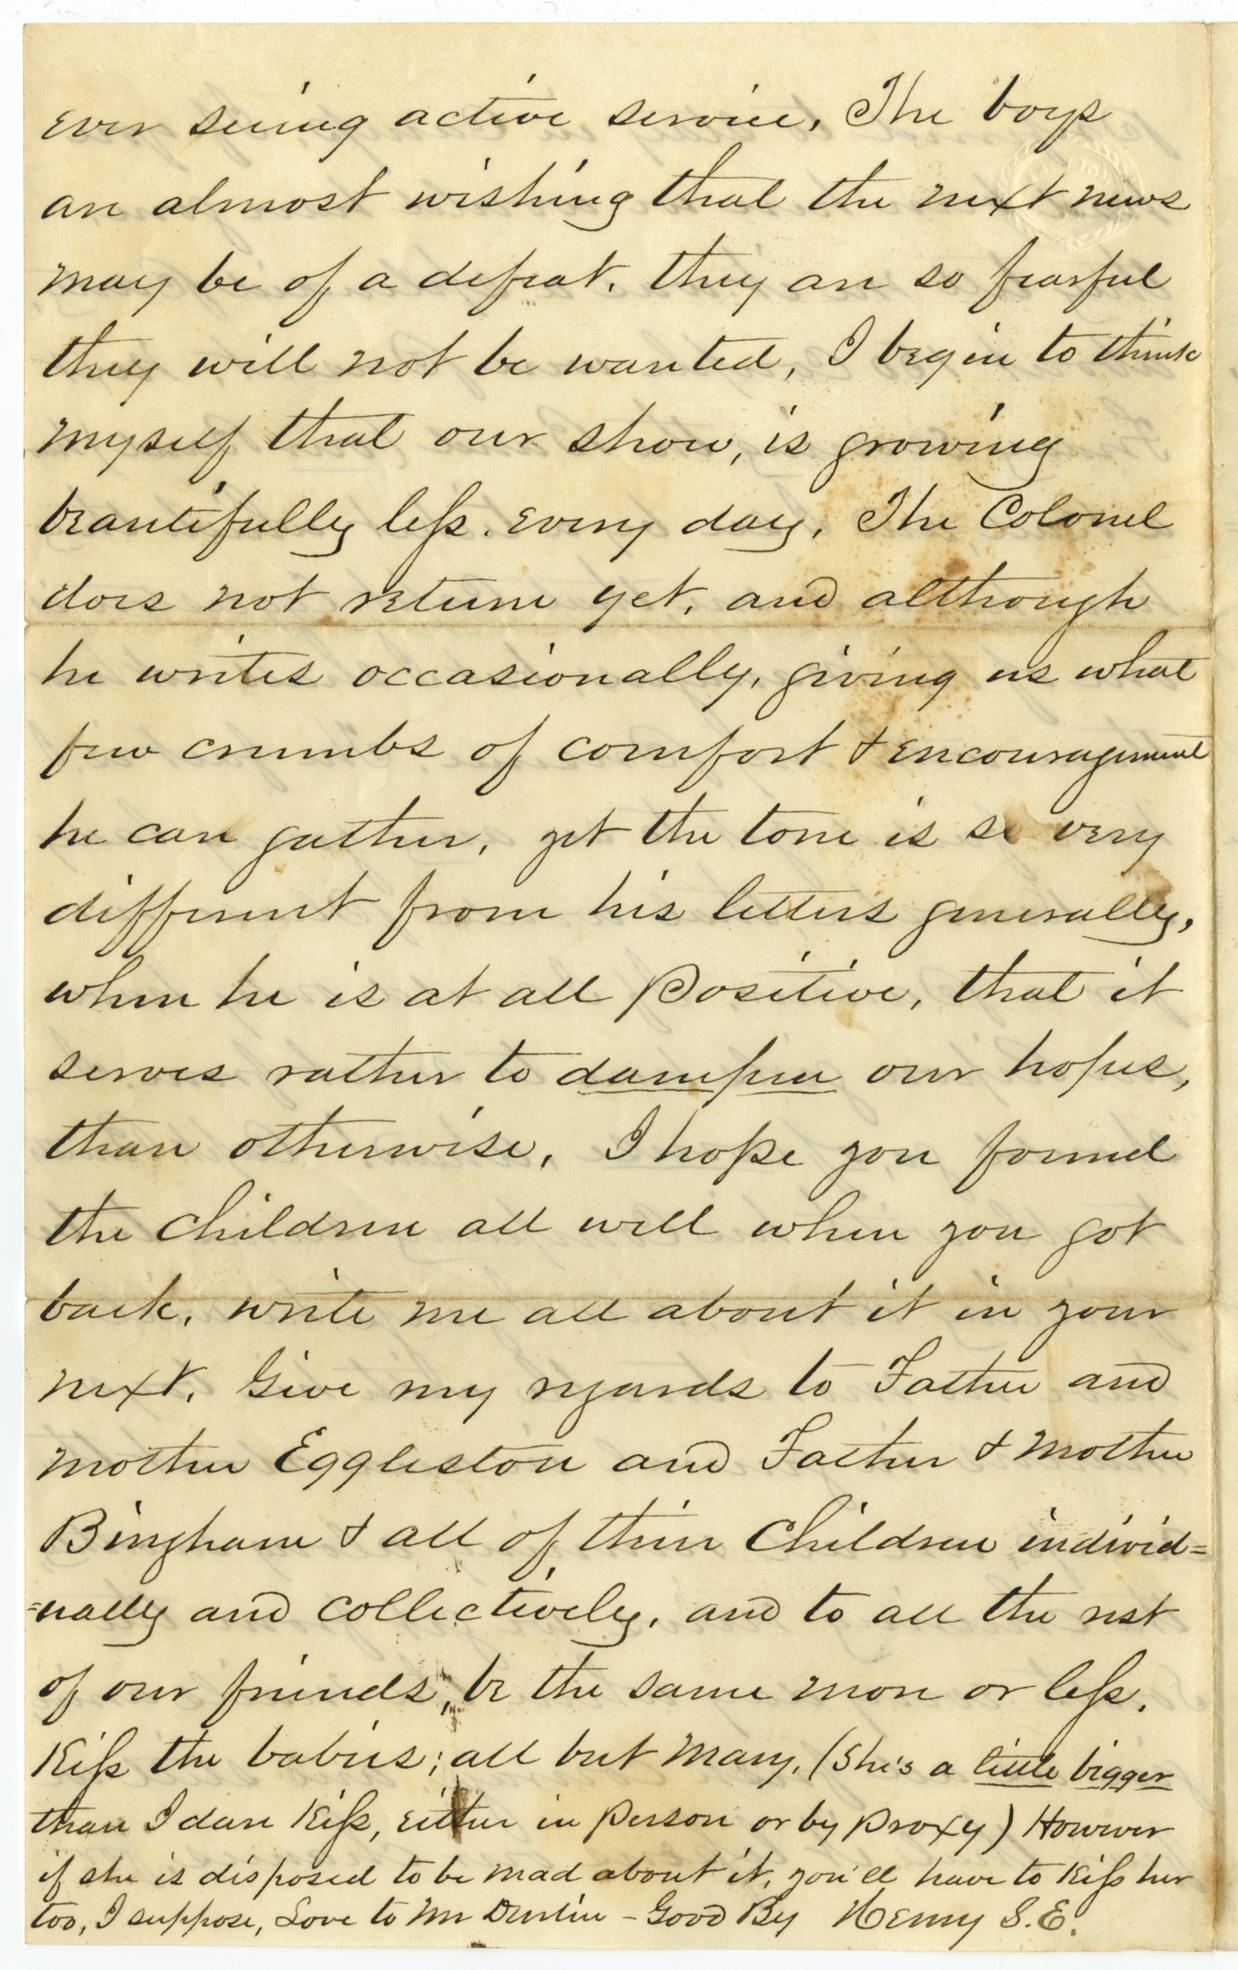 ever seeing active service, The boys
are almost wishing that the next news
may be of a defeat. they are so fearful
they will not be wanted, I begin to think
myself that our show, is growing
beautifully less. every day, The Colonel
does not return yet, and although
he writes occasionally, giving us what
few crumbs of comfort & encouragement
he can gather, yet the tone is so very
different from his letters generally,
when he is at all Positive, that it
serves rather to dampen our hopes,
than otherwise, I hope you found
the Children all well when you got
back, write me all about it in your
next. Give my regards to Father and
Mother Eggleston and Father & Mother
Bingham & all of their Children individ=
=ually and collectively, and to all the rest
of our friends, be the same more or less,
Kiss the babies; all but Mary, (She's a little bigger
than I dare Kiss, either in Person or by Proxy) However
if she is disposed to be mad about it, you'll have to Kiss her
too, I suppose, Love to Mr Durlin - Good By Henry S. E.